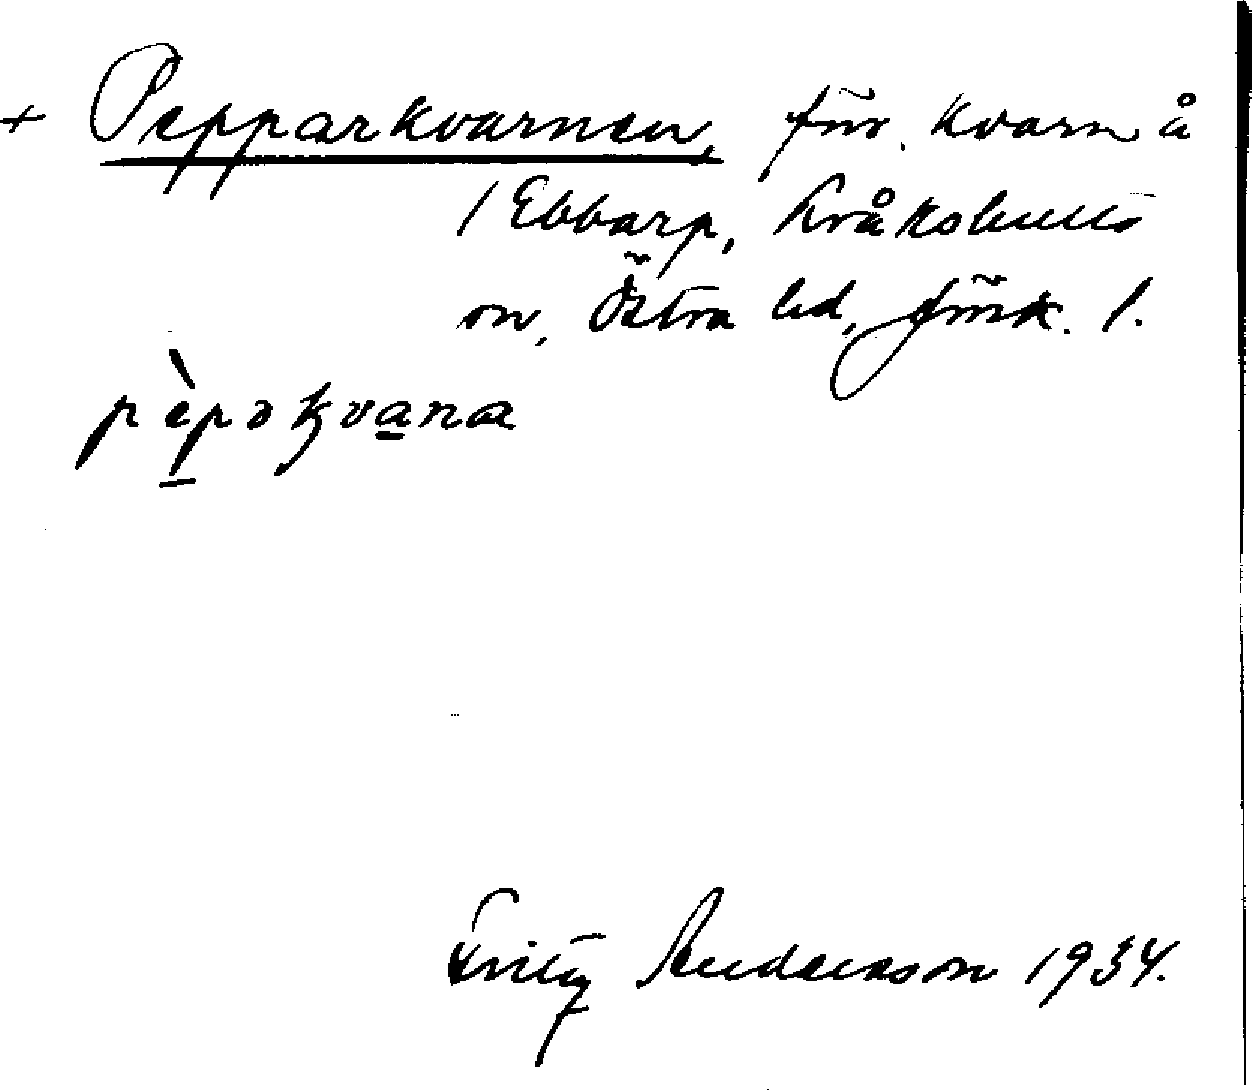 + Pepparkvarnen, för. kvarn å
1 Ebbarp, Kråkshults
sn, Östra hd, Jönk. l.
pèpəkvana
Fritz Anderson 1934.